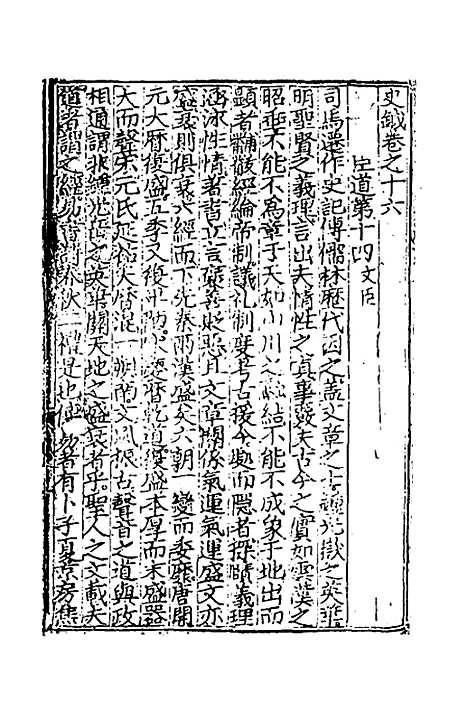 史鉞卷之十六
臣道第十四 文臣
司馬遷作史記傳儒林歷代因之蓋文章之士鍾光嶽之英華
明聖賢之義理言出夫情性之真事覈夫古今之實如雲漢之
昭垂不能不為章于天如山川之融結不能不成象于地出而
顯者黼黻經綸帝制議礼制度考古援今處而隱者探賾義理
涵泳性情者皆立言褒善貶惡且文章關係氣運氣運盛文亦
盛衰則俱衰六經而下先秦兩漢盛矣六朝一變而委靡唐開
元大曆復盛五季又復卑陋宋慶曆乾道復盛本厚而末盛器
大而聲宏元氏延祐大曆混一朔南文風振古聲音之道與政
相通謂非鍾光嶽之英華關天地之盛衰者乎聖人之文載夫
道者謂之經易書詩春秋二禮是也傳易者有卜子夏京房焦